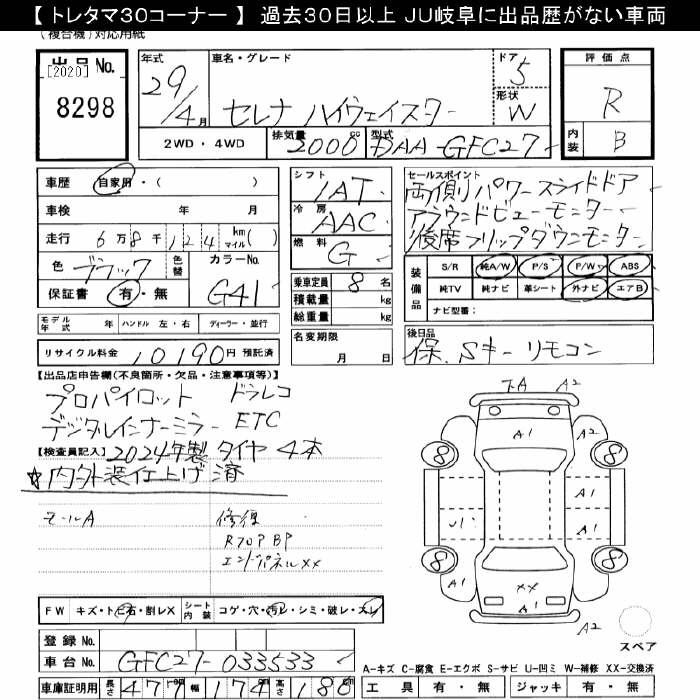 【 トレタマ30コーナー 】 過去30日以上 JU岐阜に出品歴がない車両
(複合機)対応用紙
出品 No.
[2020]
8298
年式
29/4月
車名・グレード
セレナ ハイウェイスター
ドア
5
形状
W
評価点
R
内装
B
2WD ・ 4WD
排気量 2000cc
型式 DAA-GFC27
車歴 自家用・( )
車検 年 月
走行 6万8千124 km マイル( )
色 ブラック 色替
カラーNo. G41
保証書 有・無
シフト
IAT
冷房
AAC
燃料
G
乗車定員 8 名
積載量 kg
総重量 kg
セールスポイント
両側パワースライドドア
アラウンドビューモニター
後席フリップダウンモニター
装備品
S/R 純A/W P/S P/W ABS
純TV 純ナビ 革シート 外ナビ エアB
ナビ型番:
モデル年式 年 ハンドル 左・右 ディーラー・並行
名変期限
月 日
後日品
保、Sキー リモコン
リサイクル料金 10190円 預託済
【出品店申告欄(不良箇所・欠品・注意事項等)】
プロパイロット ドラレコ
デジタルインナーミラー ETC
【検査員記入】2024年製タイヤ 4本
☆内外装仕上げ済
モールA
修復
R70P BP
エンドパネルXX
下A A2
A1 A2
8 8
A1
U1 A1
8 8
A1 A1
XX
A1
A2
スペア
FW キズ・トビ石・割レX シート内装 コゲ・穴・汚レ・シミ・破レ・スレ
登録 No.
車台 No. GFC27-033533
車庫証明用 長さ 477cm 幅 174cm 高さ 186cm
A-キズ C-腐食 E-エクボ S-サビ U-凹ミ W-補修 XX-交換済
工具 有・無 ジャッキ 有・無